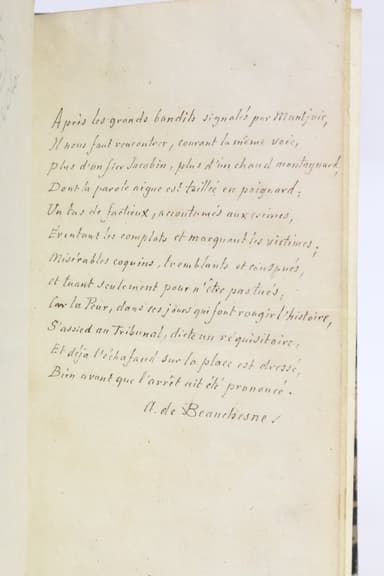 Après les grands bandits signalés par Montjoie,
Il nous faut rencontrer, courant la même voie,
Plus d'un fier Jacobin, plus d'un chaud montagnard,
Dont la parole aigue est taillée en poignard;
Un tas de factieux, accoutumés aux crimes,
Éventant les complots et marquant les victimes;
Misérables coquins, tremblants et conspués,
et tuant seulement pour n'être pas tués;
Car la Peur, dans ces jours qui font rougir l'histoire,
S'assied au Tribunal, dicte un réquisitoire,
Et déja l'échafaud sur la place est dressé,
Bien avant que l'arrêt ait été prononcé.
A. de Beauchesne